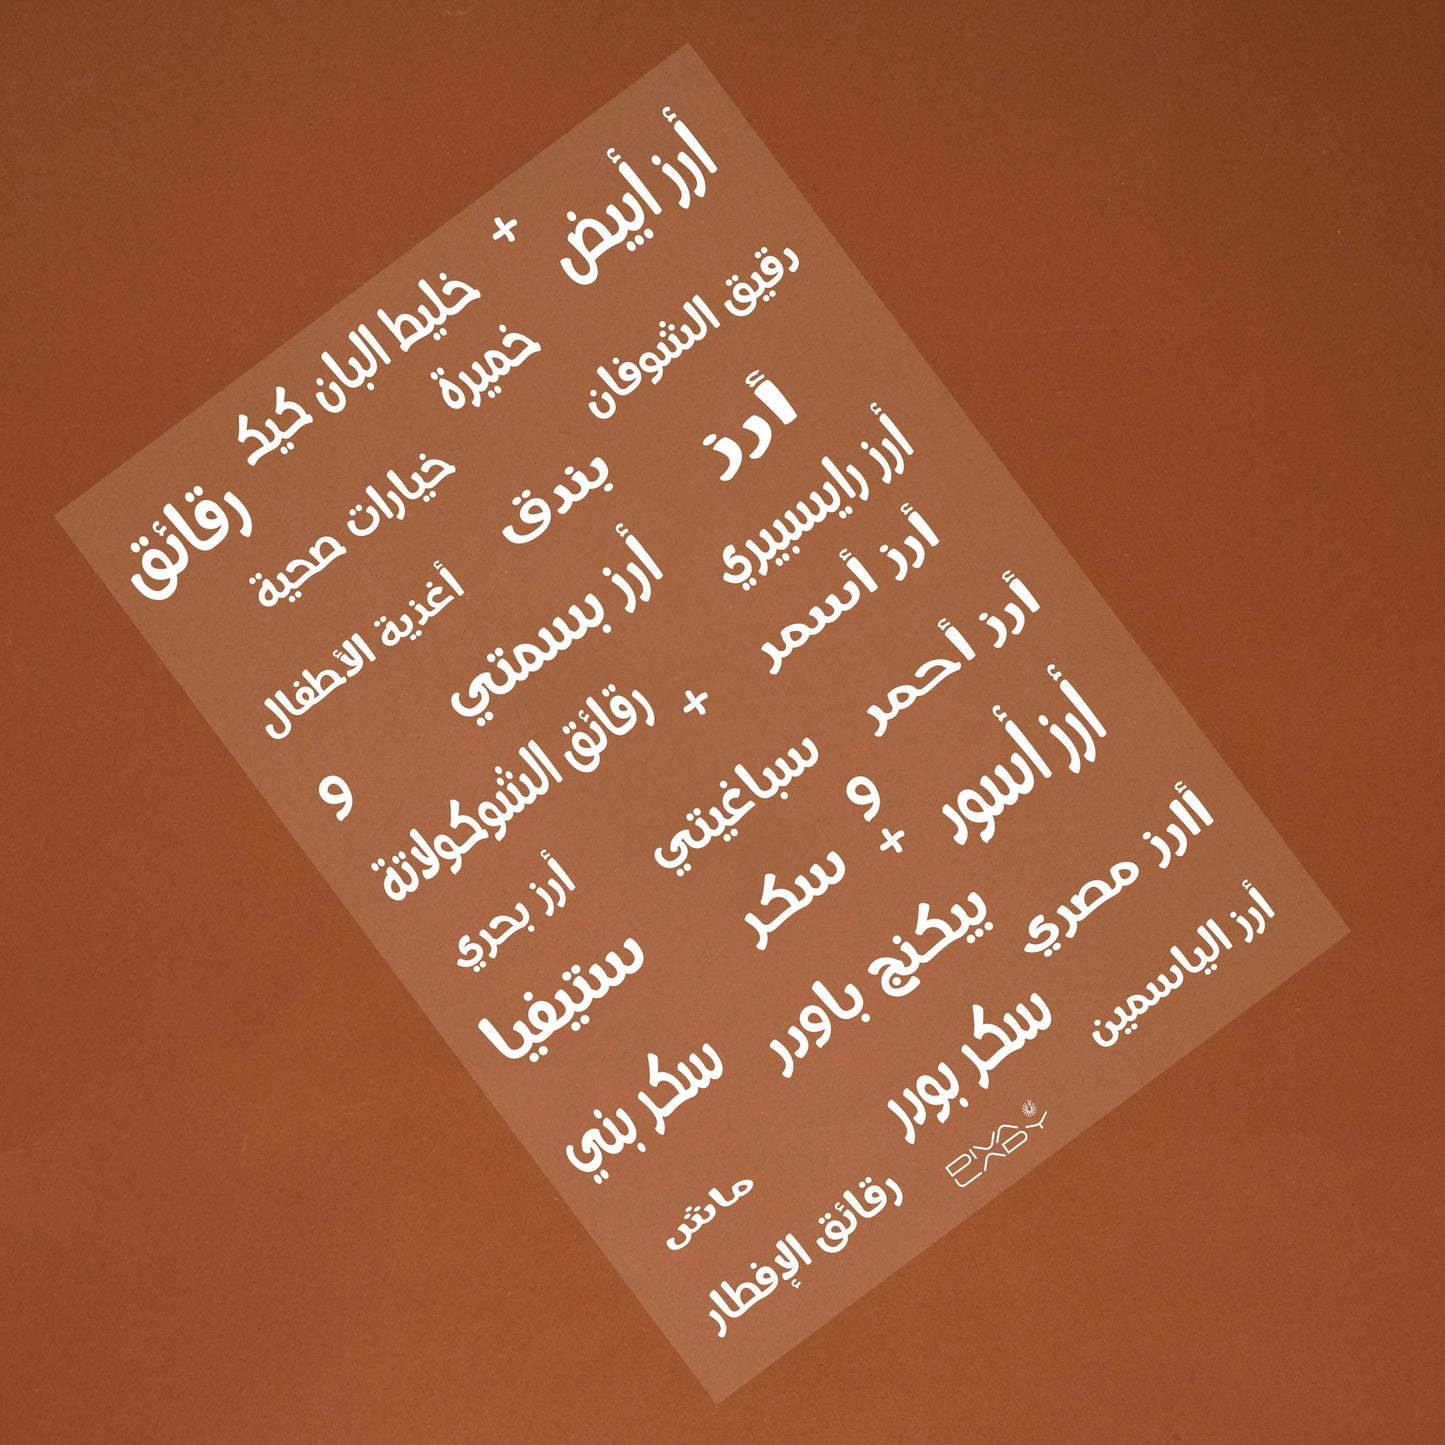 أرز أبيض
+
خليط البان كيك
رقائق
دقيق الشوفان
خميرة
خيارات صحية
أرز
بندق
أغذية الأطفال
أرز رايسبيري
أرز بسمتي
أرز أسمر
+
رقائق الشوكولاتة
و
أرز أحمر
سباغيتي
أرز بحري
أرز أسود
و
+
سكر
ستيفيا
أارز مصري
بيكنج باودر
سكر بني
أرز الياسمين
سكر بودر
ماش
DIVA LADY
رقائق الإفطار